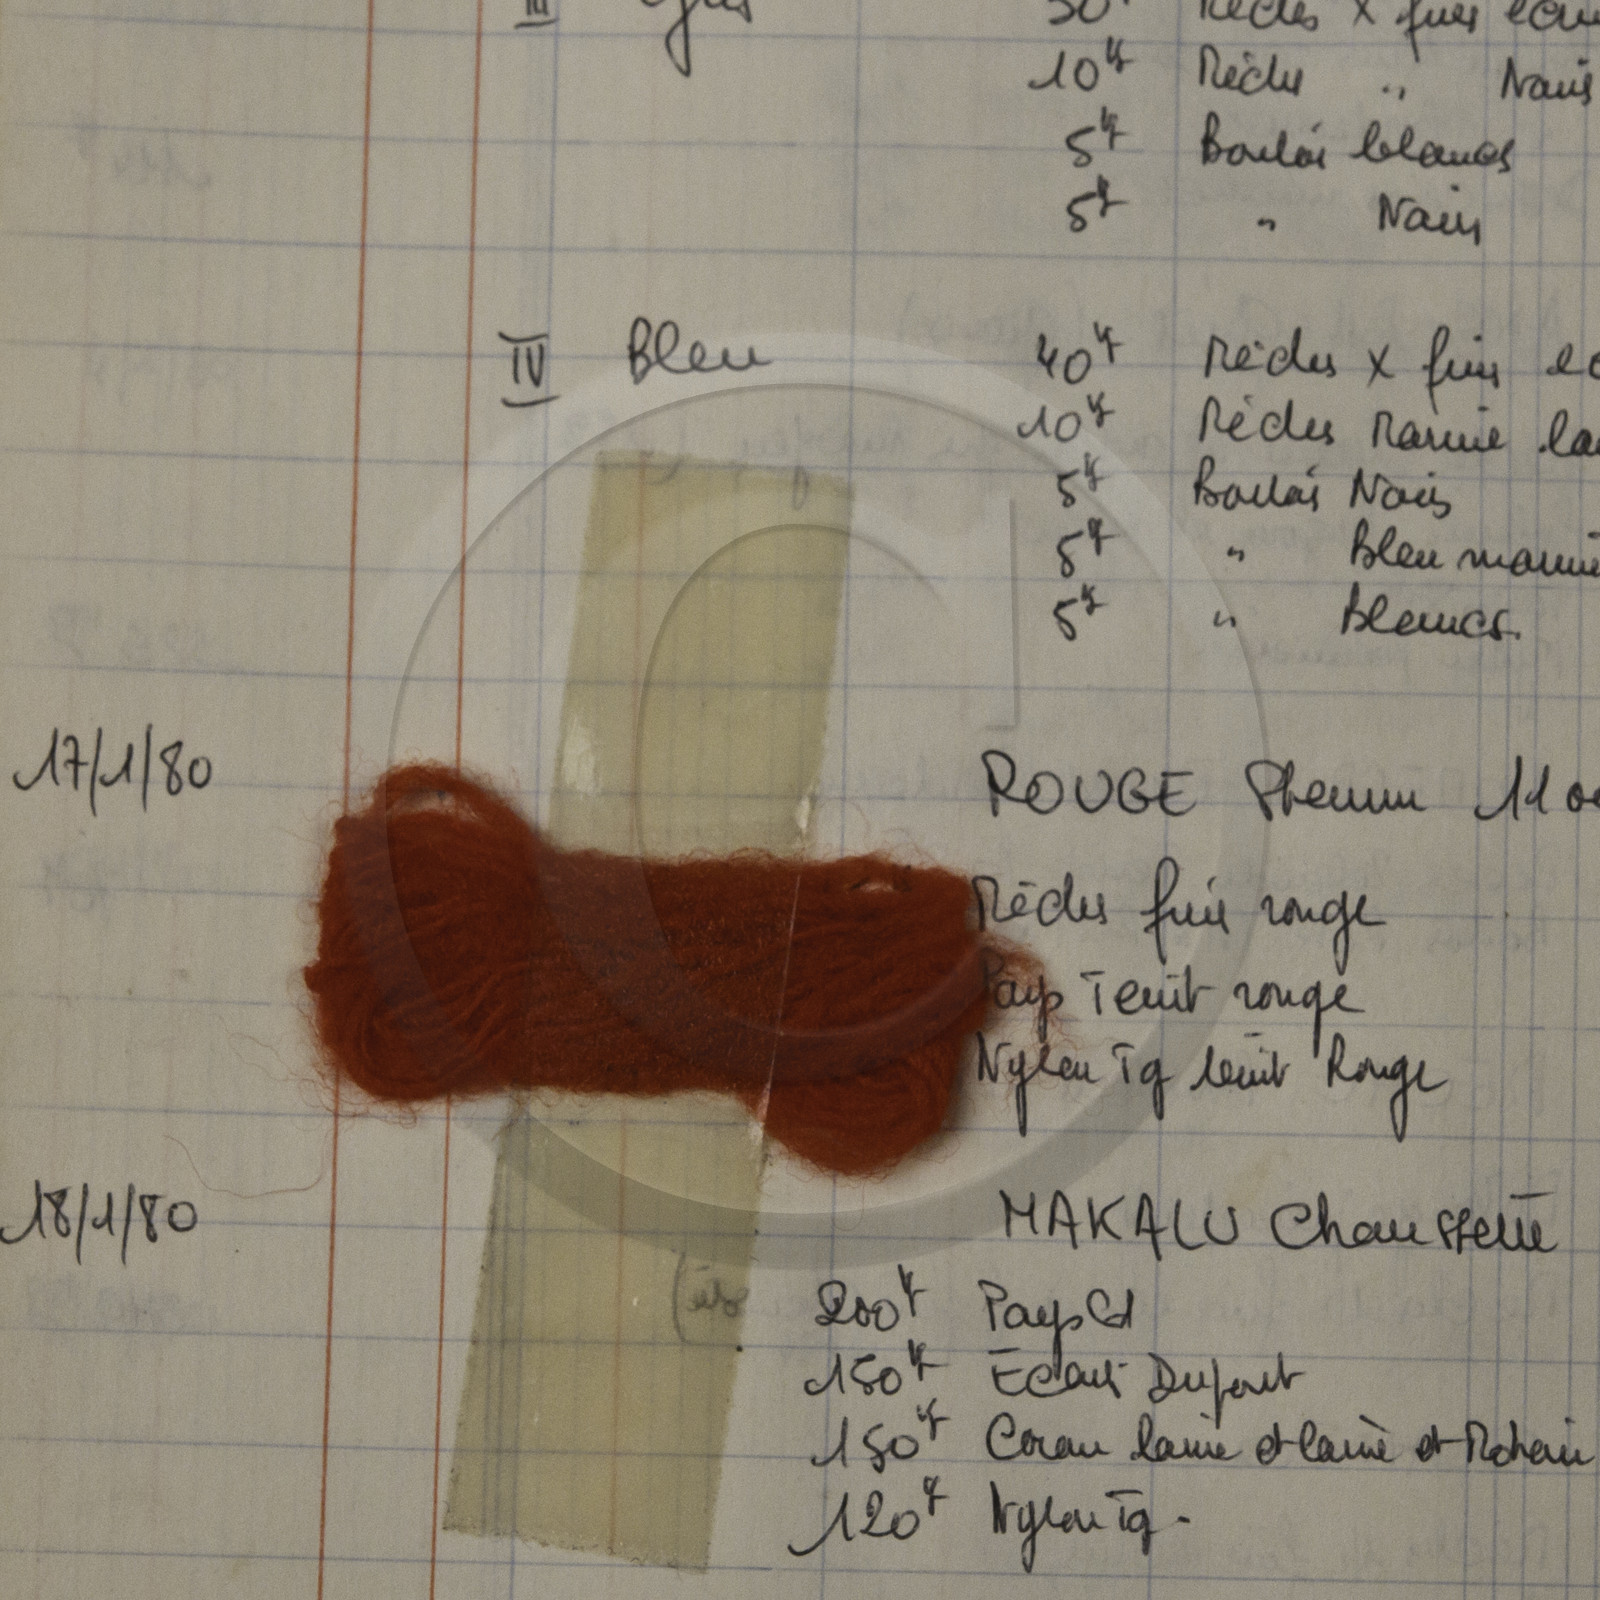 III
30 Mèches X fines
10 K Mèches " Noirs
5 K Boulós blancs
5 K " Noirs
IV Bleu 40 K Mèches X fines
10 K Mèches Marine
5 K Boulós Noirs
5 K " Bleu marine
5 K " Blancs.
17/1/80 ROUGE 11
Mèches fines rouge
Pays Teint rouge
Nylon Tq teint Rouge
18/1/80 MAKALU Chaussette
200 K Pays Cd
150 K Ecau Dupont
150 K laine et laine et Mohair
120 K Nylon Tq.